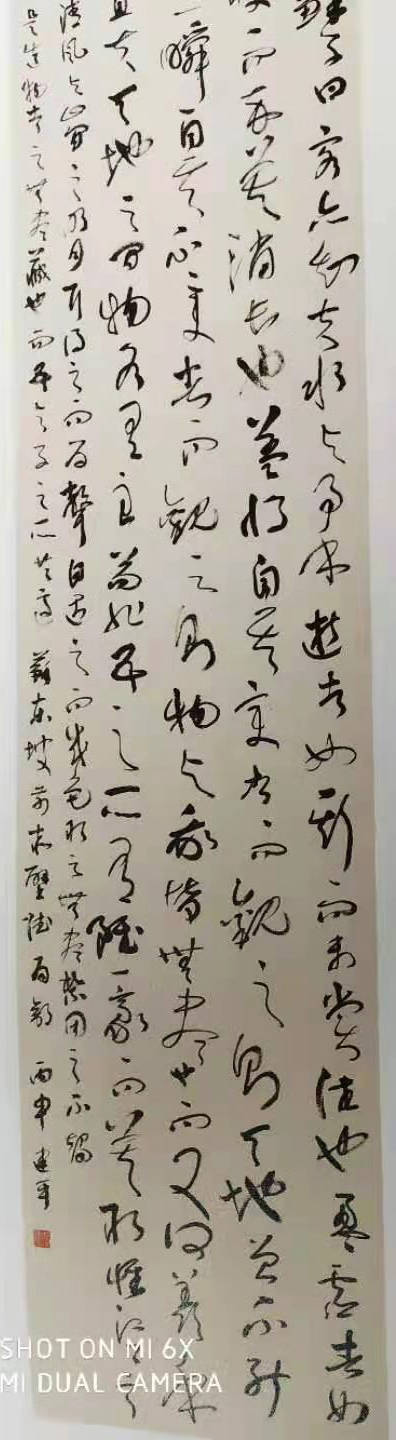 蘇子曰客亦知夫水与月乎逝者如斯而未嘗往也盈虛者如
彼而卒莫消長也蓋將自其變者而觀之則天地曾不能
一瞬自其不變者而觀之則物与我皆無盡也而又何羨乎
且夫天地之間物各有主苟非吾之所有雖一毫而莫取惟江上之
清風与山間之明月耳得之而為聲目遇之而成色取之無禁用之不竭
是造物者之無盡藏也而吾与子之所共適 蘇東坡前赤壁賦 丙申 建平
SHOT ON MI 6X
MI DUAL CAMERA